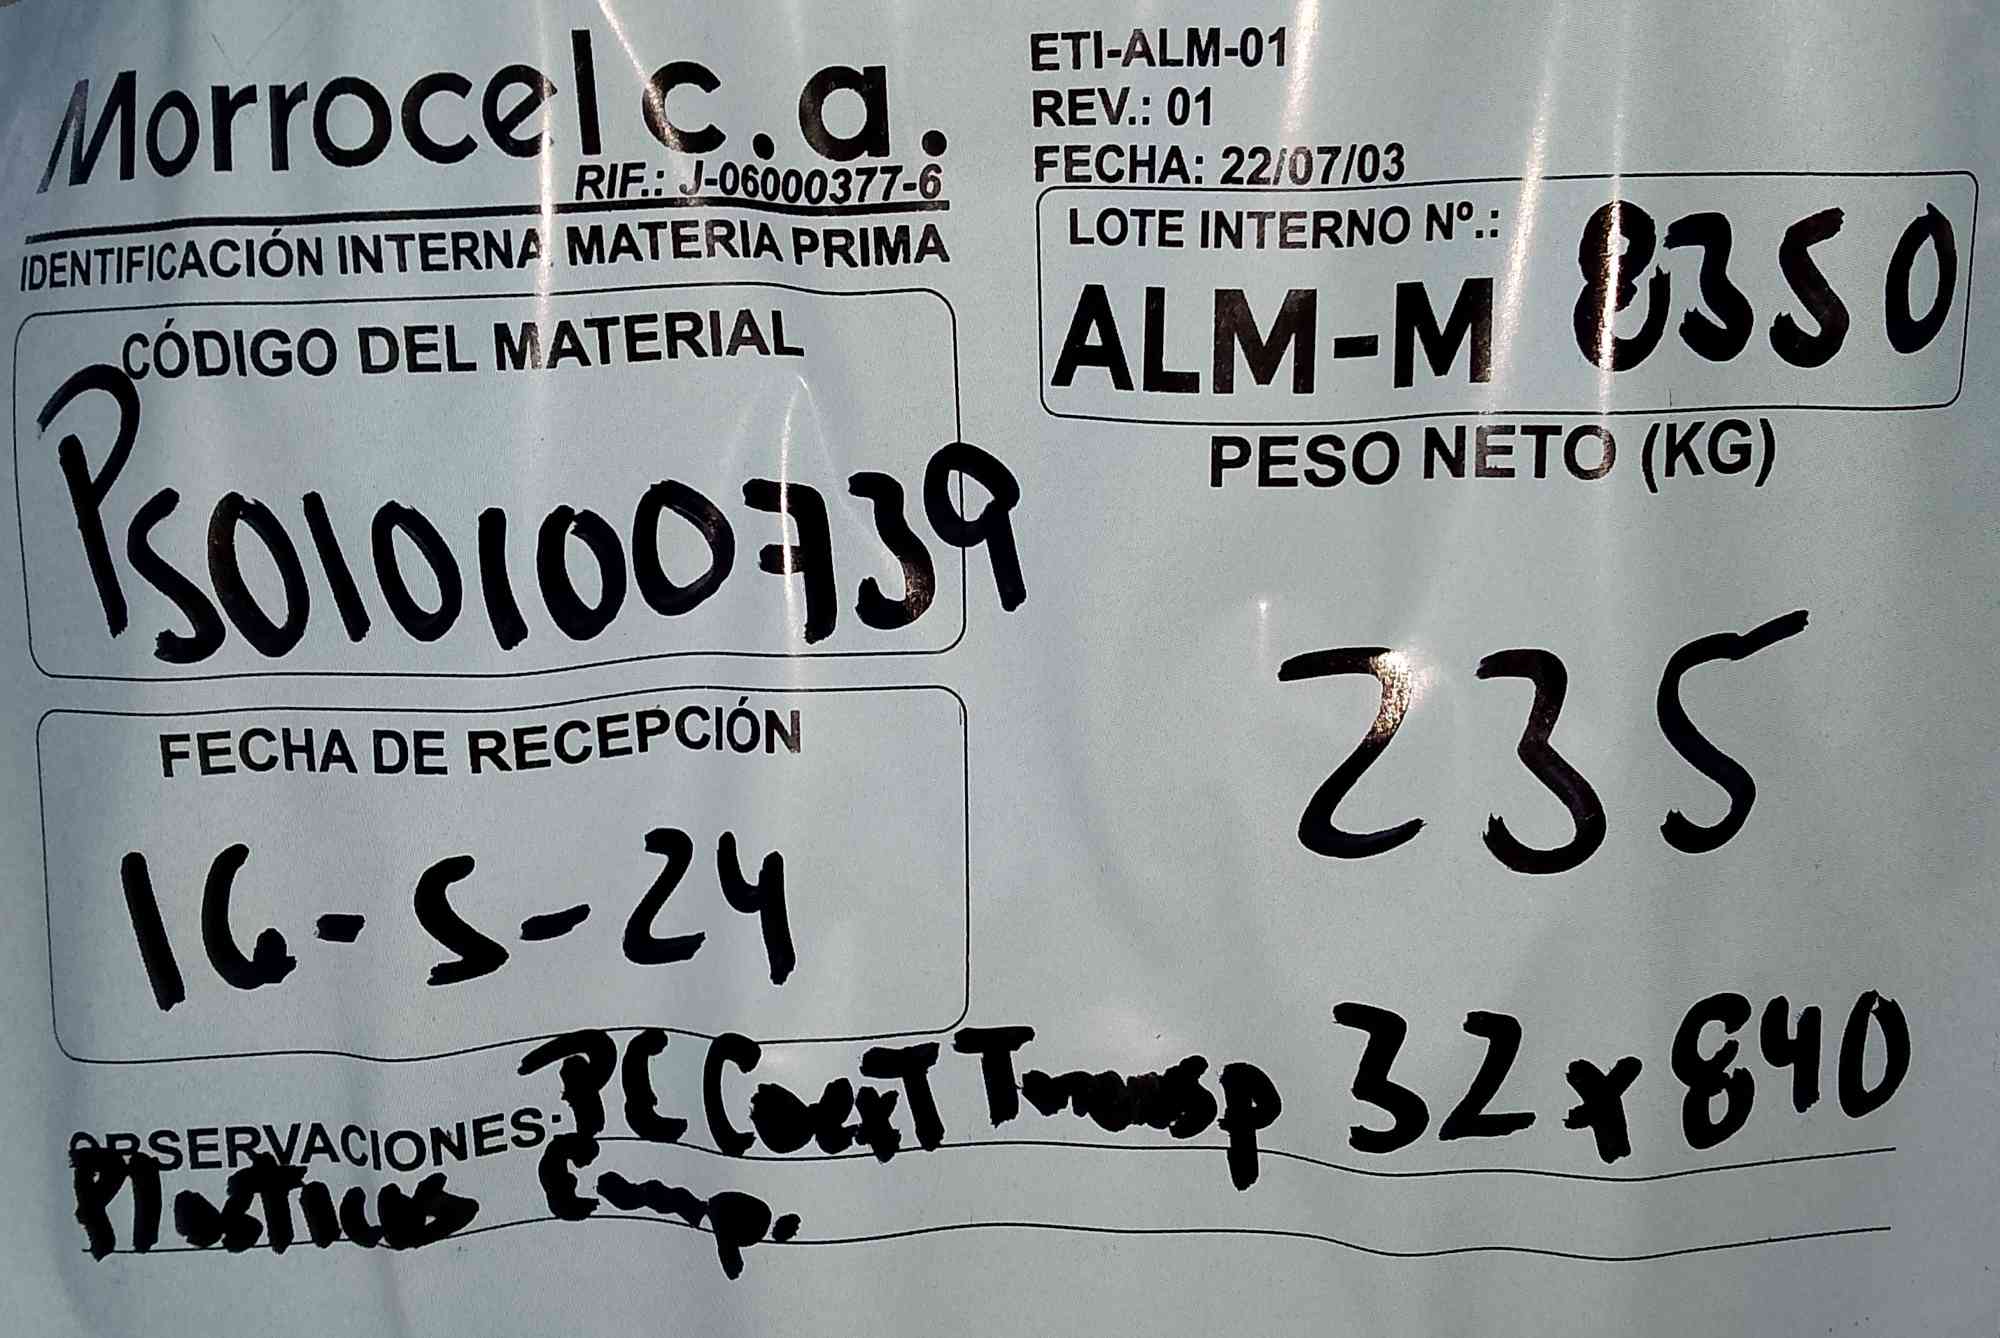 Morrocel c.a.
RIF.: J-06000377-6
IDENTIFICACIÓN INTERNA MATERIA PRIMA
ETI-ALM-01
REV.: 01
FECHA: 22/07/03
LOTE INTERNO Nº.:
ALM-M 8350
CÓDIGO DEL MATERIAL
PS010100739
PESO NETO (KG)
235
FECHA DE RECEPCIÓN
16-5-24
OBSERVACIONES: PE Coext Transp 32 x 840
Plasticos Emp.